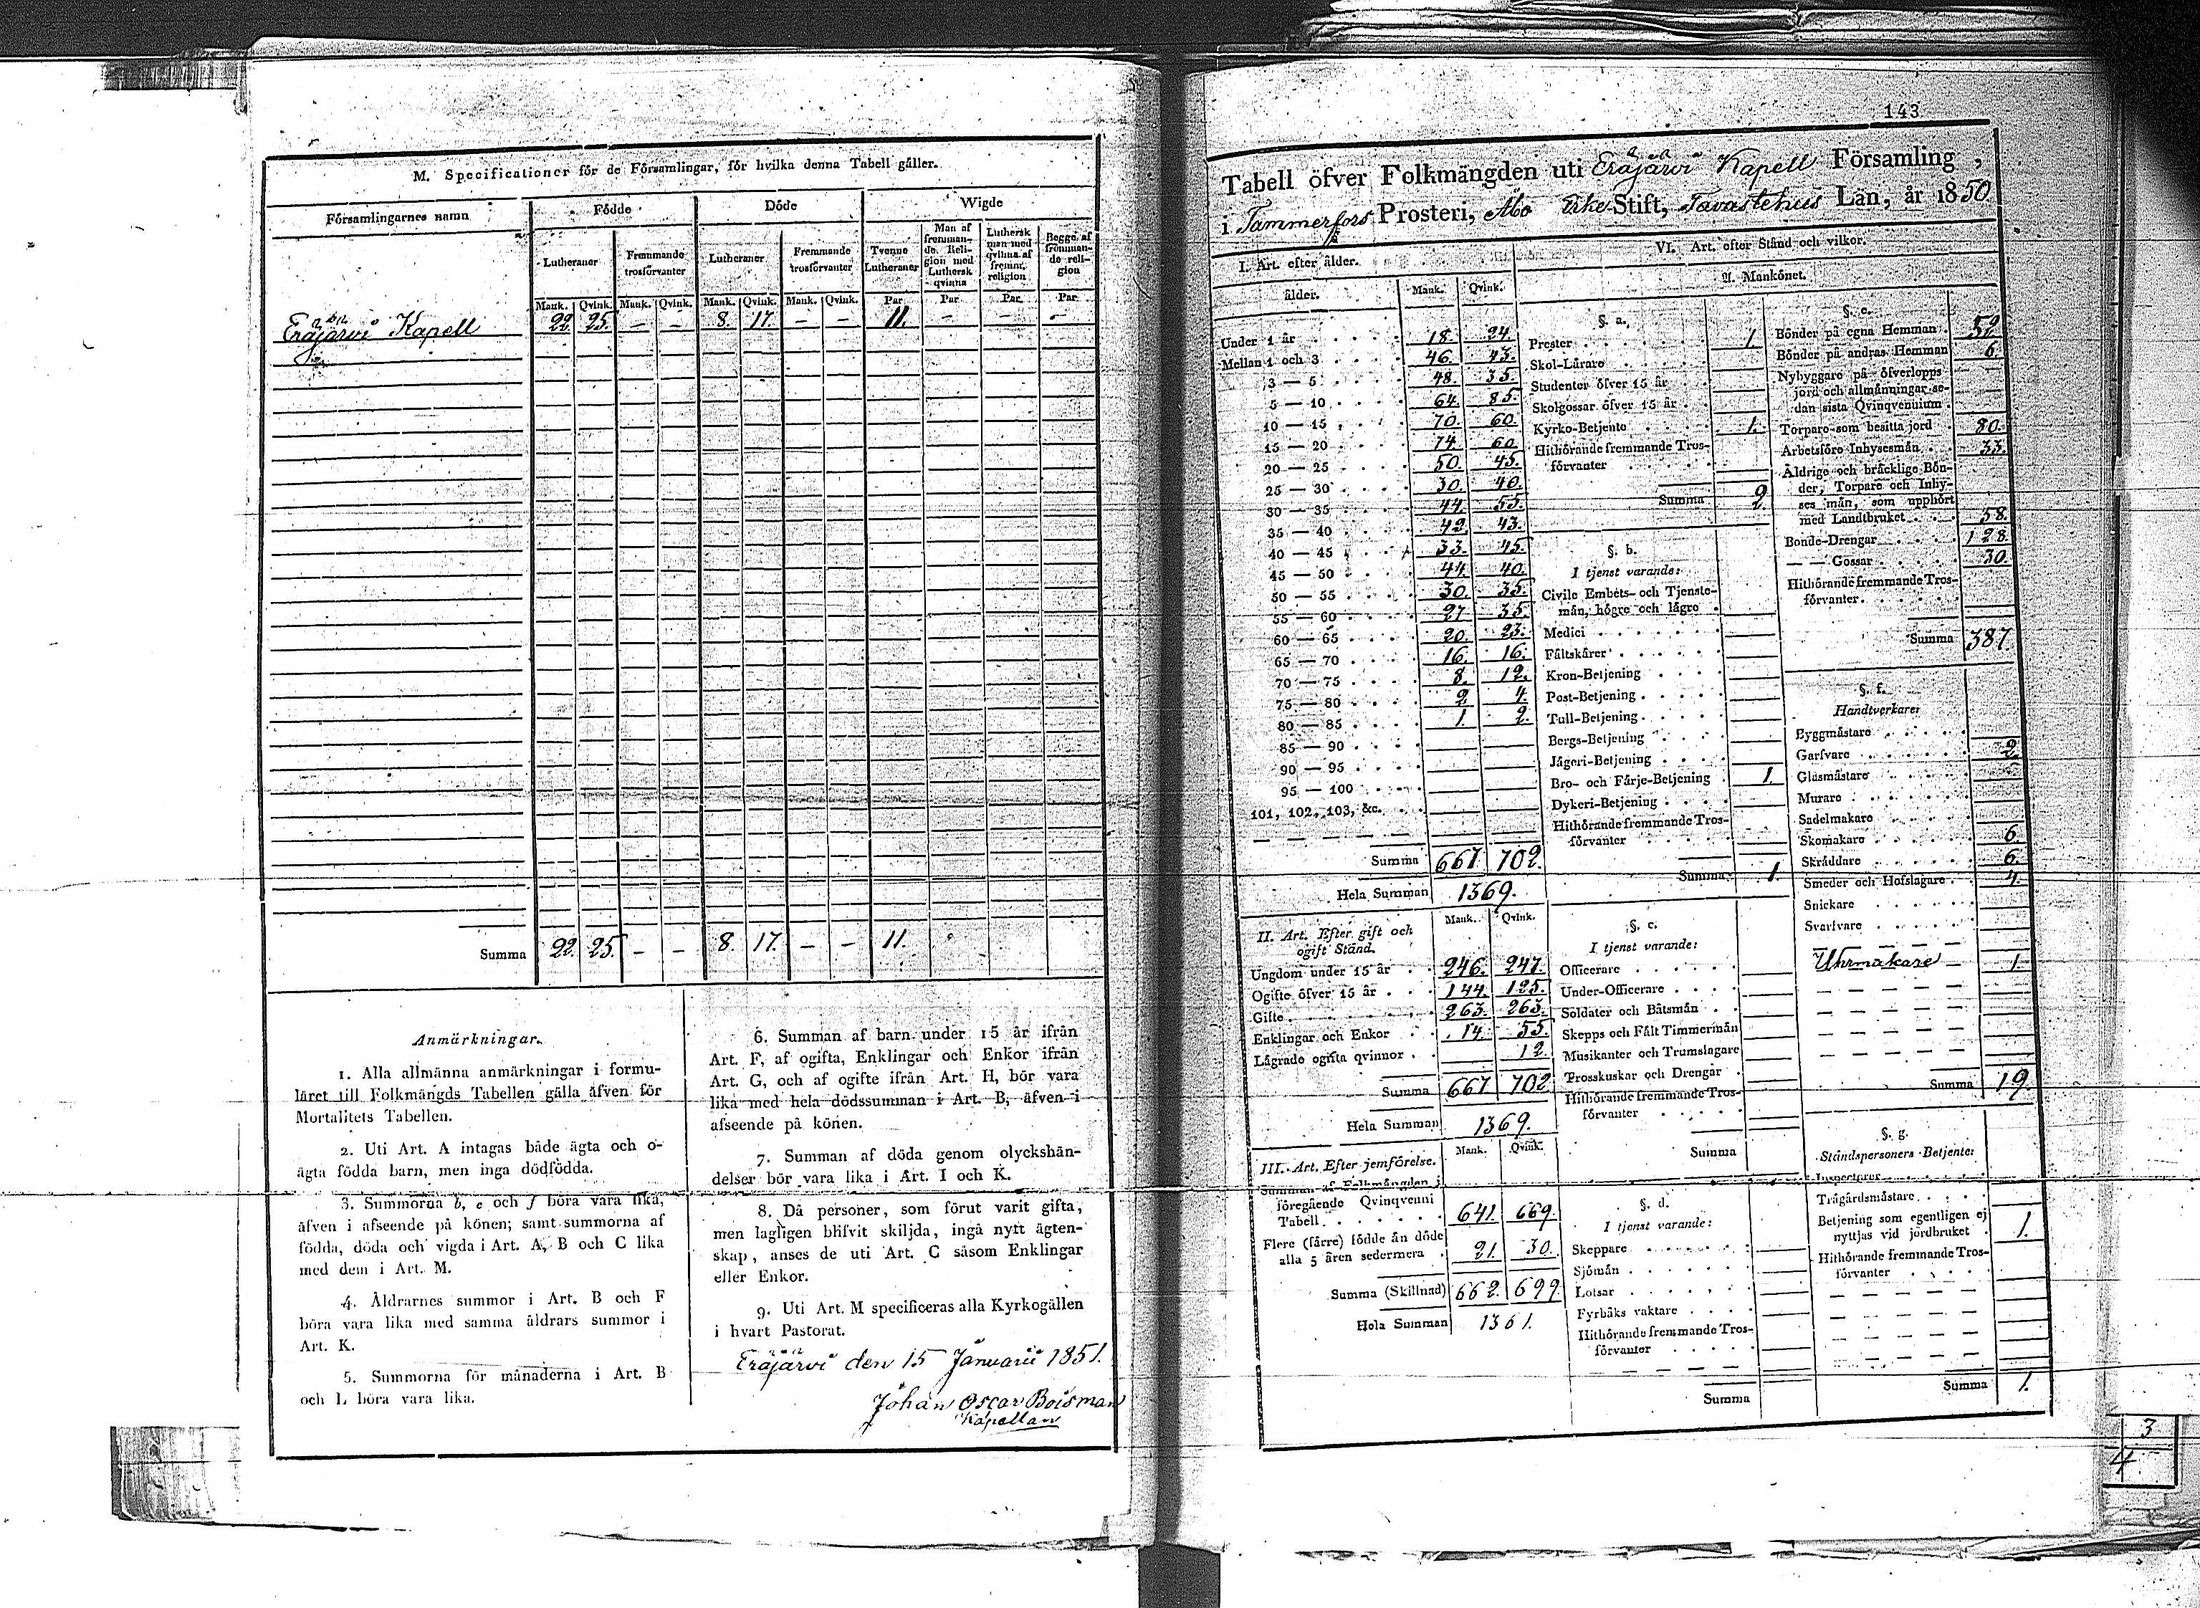 M. Specificationer för de Församlingar, för hvilka denna Tabell gäller.
Församlingarnes namn
Födde
Döde
Wigde
Lutheraner
Fremmande trosförvanter
Lutheraner
Fremmande trosförvanter
Tvenne Lutheraner
Man af fremmande Religion med Luthersk qvinna
Luthersk man med qvinna af fremm. religion
Begge af fremmande religion
Mank. Qvink. Mank. Qvink. Mank. Qvink. Mank. Qvink. Par Par Par Par
Eräjärvi Kapell 22. 25. — — 8. 17. — — 11. — — —
Summa 22. 25. — — 8. 17. — — 11.
Anmärkningar.
1. Alla allmänna anmärkningar i formu-
läret till Folkmängds Tabellen gälla äfven för
Mortalitets Tabellen.
2. Uti Art. A intagas både ägta och o-
ägta födda barn, men inga dödfödda.
3. Summorna b, e och f böra vara lika,
äfven i afseende på könen; samt summorna af
födda, döda och vigda i Art. A, B och C lika
med dem i Art. M.
4. Åldrarnes summor i Art. B och F
böra vara lika med samma åldrars summor i
Art. K.
5. Summorna för månaderna i Art. B
och L böra vara lika.
6. Summan af barn under 15 år ifrån
Art. F, af ogifta, Enklingar och Enkor ifrån
Art. G, och af ogifte ifrån Art. H, bör vara
lika med hela dödssumman i Art. B, äfven i
afseende på könen.
7. Summan af döda genom olyckshän-
delser bör vara lika i Art. I och K.
8. Då personer, som förut varit gifta,
men lagligen blifvit skiljda, ingå nytt ägten-
skap, anses de uti Art. C såsom Enklingar
eller Enkor.
9. Uti Art. M specificeras alla Kyrkogällen
i hvart Pastorat.
Eräjärvi den 15 Januarii 1851.
Johan Oscar Boisman
Kapellan
143
Tabell öfver Folkmängden uti Eräjärvi Kapell Församling,
i Tammerfors Prosteri, Åbo Erke Stift, Tavastehus Län, år 1850
I. Art. efter ålder.
ålder. Mank. Qvink.
Under 1 år 18. 24.
Mellan 1 och 3 46. 43.
3 — 5 48. 35.
5 — 10 64. 85.
10 — 15 70. 60.
15 — 20 74. 60.
20 — 25 50. 45.
25 — 30 30. 40.
30 — 35 44. 55.
35 — 40 42. 43.
40 — 45 33. 45.
45 — 50 44. 40.
50 — 55 30. 35.
55 — 60 27. 35.
60 — 65 20. 23.
65 — 70 16. 16.
70 — 75 8. 12.
75 — 80 2. 4.
80 — 85 1. 2.
85 — 90
90 — 95
95 — 100
101, 102, 103, &c.
Summa 667. 702.
Hela Summan 1369.
II. Art. Efter gift och ogift Stånd. Mank. Qvink.
Ungdom under 15 år 246. 247.
Ogifte öfver 15 år 144. 125.
Gifte 263. 263.
Enklingar och Enkor 14. 55.
Lägrade ogifta qvinnor 12.
Summa 667. 702
Hela Summan 1369.
III. Art. Efter jemförelse. Mank. Qvink.
Summan af Folkmängden i
föregående Qvinqvenni
Tabell 641. 669.
Flere (färre) födde än döde
alla 5 åren sedermera 21. 30.
Summa (Skillnad) 662. 699.
Hela Summan 1361.
VI. Art. efter Stånd och vilkor.
A. Mankönet.
§. a.
Prester 1.
Skol-Lärare
Studenter öfver 15 år
Skolgossar öfver 15 år
Kyrko-Betjente 1.
Hithörande fremmande Tros-
förvanter
Summa 2.
§. b.
I tjenst varande:
Civile Embets- och Tjenste-
män, högre och lägre
Medici
Fältskärer
Kron-Betjening
Post-Betjening
Tull-Betjening
Bergs-Betjening
Jägeri-Betjening
Bro- och Färje-Betjening 1.
Dykeri-Betjening
Hithörande fremmande Tros-
förvanter
Summa 1.
§. c.
I tjenst varande:
Officerare
Under-Officerare
Soldater och Båtsmän
Skepps och Fält Timmermän
Musikanter och Trumslagare
Trosskuskar och Drengar
Hithörande fremmande Tros-
förvanter
Summa
§. d.
I tjenst varande:
Skeppare
Sjömän
Lotsar
Fyrbåks vaktare
Hithörande fremmande Tros-
förvanter
Summa
§. e.
Bönder på egna Hemman 52.
Bönder på andras Hemman 6.
Nybyggare på öfverlopps
jord och allmänningar se-
dan sista Qvinqvenuium
Torpare som besitta jord 80.
Arbetsföre Inhysesmän 33.
Åldrige och bräcklige Bön-
der, Torpare och Inhy-
ses män, som upphört
med Landtbruket 58.
Bonde-Drengar 128.
— — Gossar 30.
Hithörande fremmande Tros-
förvanter
Summa 387.
§. f.
Handtverkare:
Byggmästare
Garfvare 2.
Glasmästare
Murare
Sadelmakare
Skomakare 6.
Skräddare 6.
Smeder och Hofslagare 4.
Snickare
Svarfvare
Uhrmakare 1.
Summa 19.
§. g.
Ståndspersoners Betjente:
Inspectorer
Trägårdsmästare
Betjening som egentligen ej
nyttjas vid jordbruket 1.
Hithörande fremmande Tros-
förvanter
Summa 1.
3
4